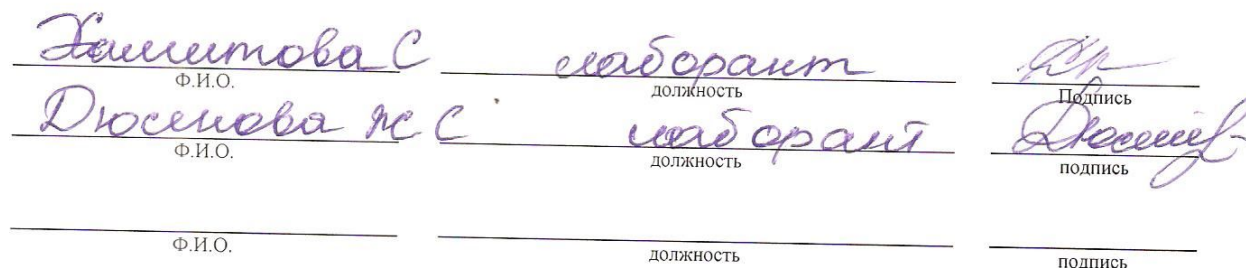 Хамитова С лаборант
Ф.И.О. должность Подпись
Дюсенова Ж С лаборант
Ф.И.О. должность подпись
Ф.И.О. должность подпись